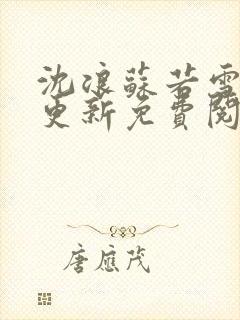 沈浪蘇若雪
更新免費閱
唐應茂